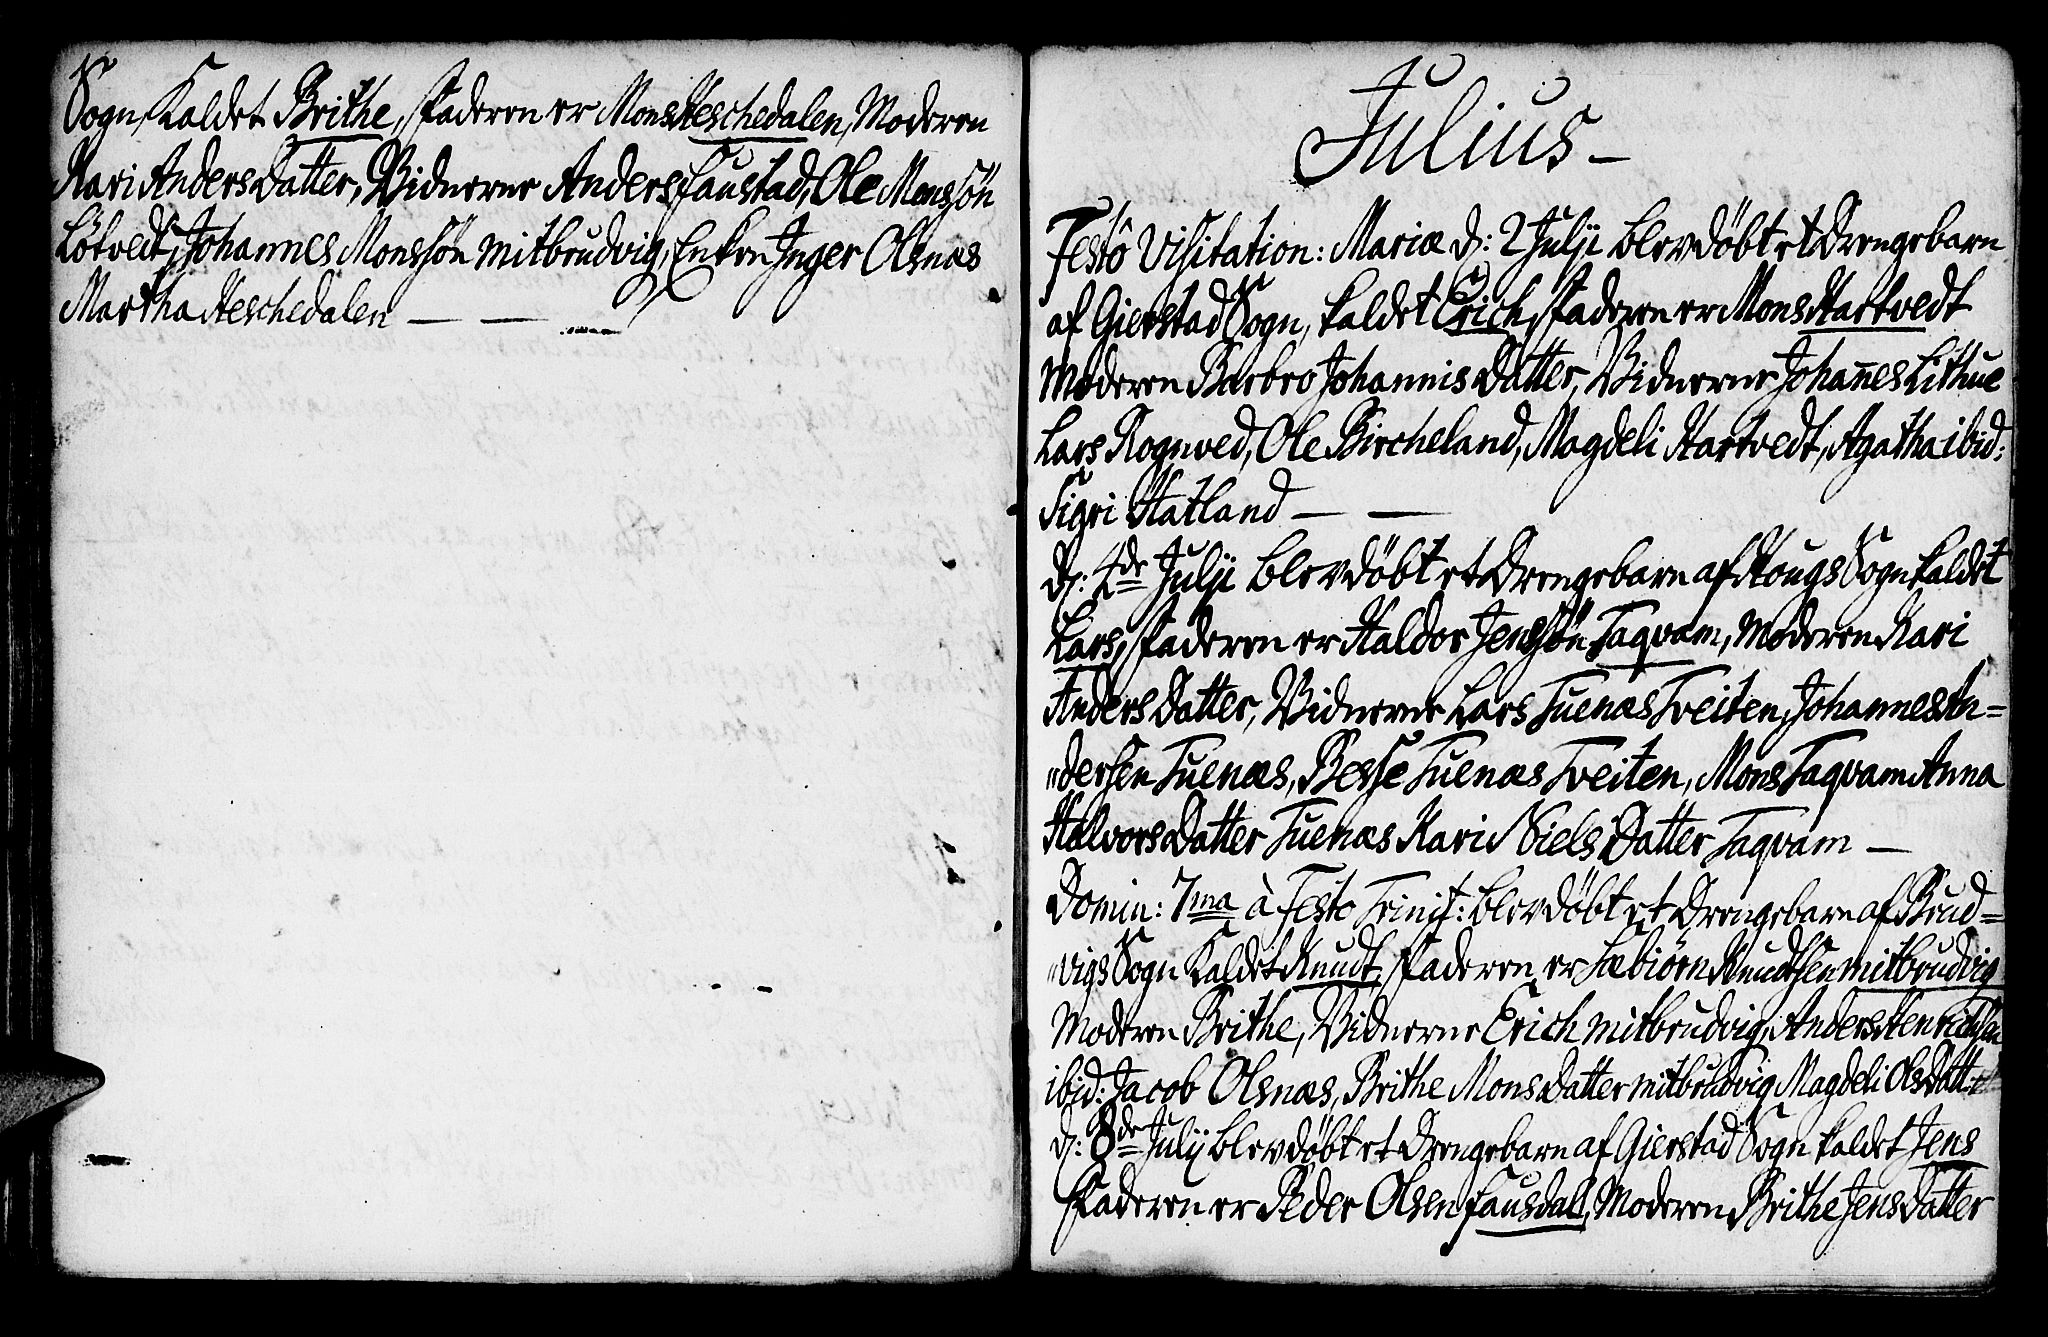 Sogn, Kaldet Brithe, Faderen er Mons Heschedalen, Moderen
Kari Anders Datter, Vidnerne Anders Faustad, Ole Monssön
Lötvedt, Johannes Monssön Mitbrudvig, Enken Inger Olsnæs
Martha Heschedalen — —
Julius —
Festô Visitation: Mariæ d: 2 Julji blev döbt et Drengebarn
af Gierstad Sogn, kaldet Erich, Faderen er Mons Hartvedt
Moderen Barbro Johannis Datter, Vidnerne Johañes Lithue
Lars Rognved, Ole Bircheland, Magdeli Hartvedt, Agatha ibid:
Sigri Hatland — —
d: 4de Julji blev döbt et Drengebarn af Hougs Sogn kaldet
Lars, Faderen er Haldor Jenssön Taqvam, Moderen Kari
Anders Datter, Vidnerne Lars Tuenæs Tveiten, Johannes An=
"dersen Tuenæs, Besse Tuenæs Tveiten, Mons Taqvam Anna
Halvors Datter Tuenæs Kari Niels Datter Taqvam —
Domin: 7ma à Festo Trinit: blev döbt et Drengebarn af Brud=
"vigs Sogn Kaldet Knudt, Faderen er Sæbiörn Knudtsen mitbrudvig
Moderen Brithe, Vidnerne Erich mitbrudvig, Anders Henrichsen
ibid: Jacob Olsnæs, Brithe Mons Datter mitbrudvig Magdeli Ols Datt:
d: 8de Julij blev döbt et Drengebarn af Gierstad Sogn kaldet Jens
Faderen er Peder Olsen Fausdal, Moderen Brithe Jens Datter